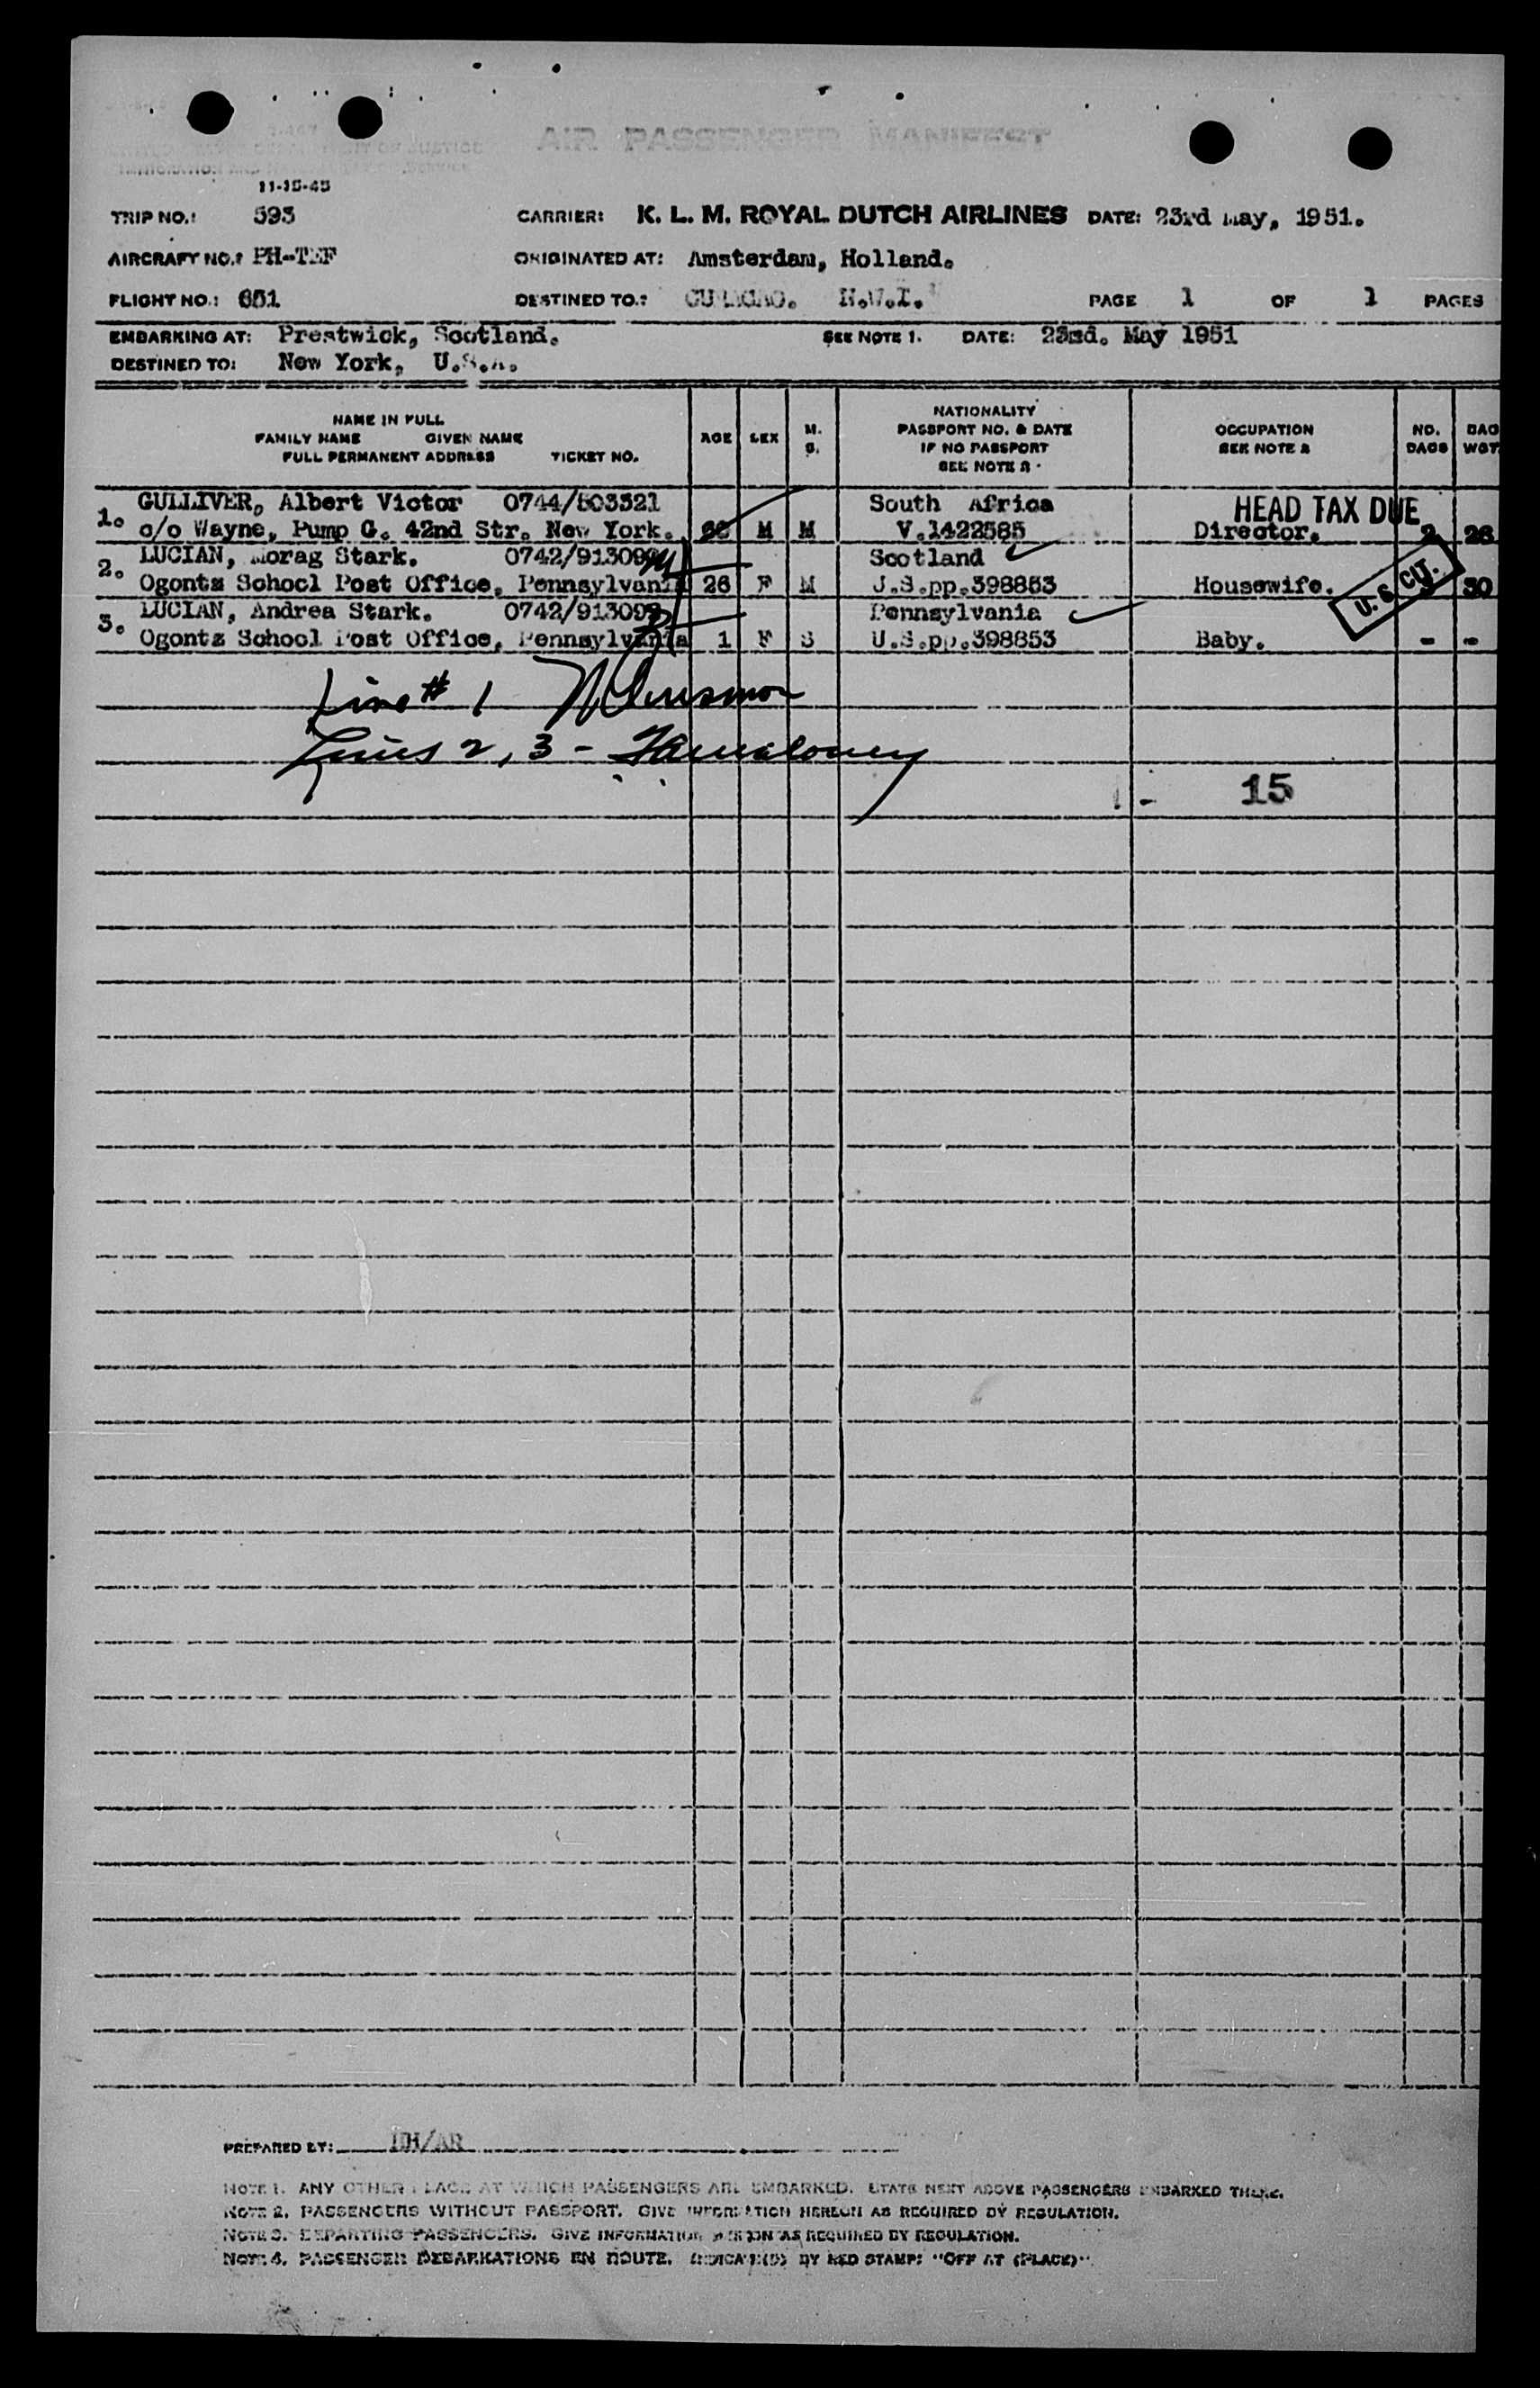 AIR PASSENGER MANIFEST
11-15-45
TRIP NO.: 593 CARRIER: K. L. M. ROYAL DUTCH AIRLINES DATE: 23rd May, 1951.
AIRCRAFT NO.: PH-TEF ORIGINATED AT: Amsterdam, Holland.
FLIGHT NO.: 651 DESTINED TO.: CURACAO. N.W.I. PAGE 1 OF 1 PAGES
EMBARKING AT: Prestwick, Scotland. SEE NOTE 1. DATE: May 1951
DESTINED TO: New York, U.S.A.
NAME IN FULL
FAMILY NAME GIVEN NAME
FULL PERMANENT ADDRESS TICKET NO.
AGE SEX M. S.
NATIONALITY
PASSPORT NO. & DATE
IF NO PASSPORT
SEE NOTE 2
OCCUPATION
SEE NOTE 2
NO. BAGS
BAG WGT.
1. GULLIVER, Albert Victor 0744/503321 South Africa HEAD TAX DUE
c/o Wayne, Pump G. 42nd Str. New York. M M V.1422585 Director. 2 26
2. LUCIAN, Morag Stark. Scotland
Ogontz School Post Office, Pennsylvania 26 F M U.S.pp.398853 Housewife. 30
U.S. CIT.
3. LUCIAN, Andrea Stark. Pennsylvania
Ogontz School Post Office, Pennsylvania 1 F S U.S.pp.398853 Baby. - -
Line # 1
Lines 2, 3 -
15
PREPARED BY:
NOTE 1. ANY OTHER PLACE AT WHICH PASSENGERS ARE EMBARKED. STATE NEXT ABOVE PASSENGERS EMBARKED THERE.
NOTE 2. PASSENGERS WITHOUT PASSPORT. GIVE INFORMATION HEREON AS REQUIRED BY REGULATION.
NOTE 3. DEPARTING PASSENGERS. GIVE INFORMATION HEREON AS REQUIRED BY REGULATION.
NOTE 4. PASSENGER DEBARKATIONS EN ROUTE. INDICATE(D) BY RED STAMP: "OFF AT (PLACE)"